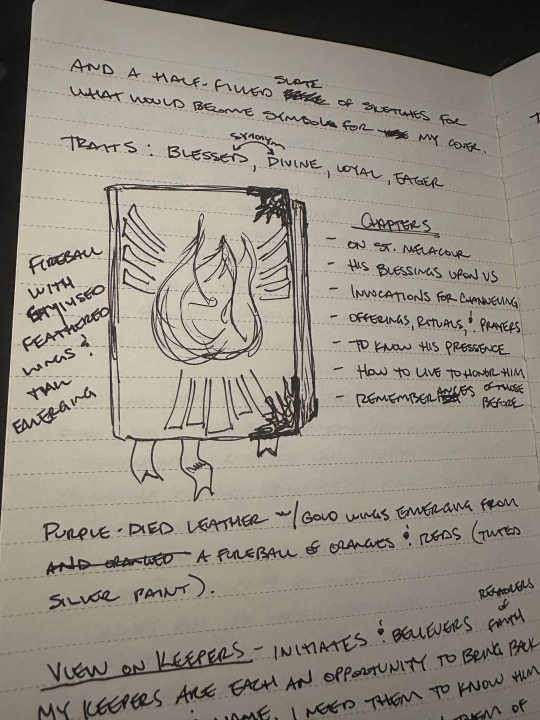 AND A HALF-FILLED SLATE OF SKETCHES FOR
WHAT WOULD BECOME SYMBOLS FOR MY COVER.
SYNONYM
TRAITS: BLESSED, DIVINE, LOYAL, EAGER
FIREBALL
WITH
STYLISED
FEATHERED
WINGS &
TAIL
EMERGING
CHAPTERS
- ON ST. MELACOUR
- HIS BLESSINGS UPON US
- INVOCATIONS FOR CHANNELING
- OFFERINGS, RITUALS, & PRAYERS
- TO KNOW HIS PRESSENCE
- HOW TO LIVE TO HONOR HIM
- REMEMBERANCES OF THOSE
BEFORE
PURPLE-DIED LEATHER W/ GOLD WINGS EMERGING FROM
AND ORANGED A FIREBALL OF ORANGES & REDS (TINTED
SILVER PAINT).
VIEW ON KEEPERS - INITIATES & BELIEVERS
OF FAITH
MY KEEPERS ARE EACH AN OPPORTUNITY TO BRING BACK
I NEED THEM TO KNOW HIM
THEM OF